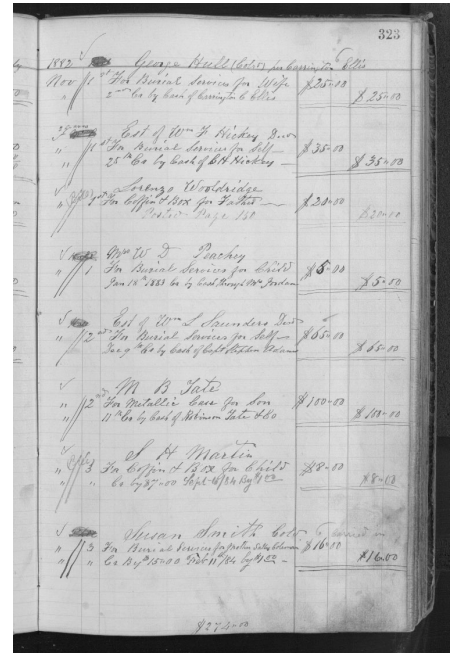 323
1882 George Hull (Cold) for Carrington Ellis
Nov 1st For Burial Services for Wife $25-00
" 2nd Cr by Cash of Carrington C Ellis $25-00
Est of Wm F Hickey Decd
" 1st For Burial Services for Self $35-00
" 25th Cr by Cash of C H Hickey $35-00
Lorenzo Wooldridge
" 1st For Coffin & Box for Father $20-00
Posted Page 150 $20-00
Mrs W D Peachey
" 1 For Burial Services for Child $5-00
Jan 18th 1883 Cr by Cash through Mr Jordan $5-00
Est of Wm S Saunders Decd
" 2nd For Burial Services for Self $65-00
9th Cr by Cash of Capt Stephen Adams $65-00
M B Tate
" 2nd For Metallic Case for Son $100-00
" 11th Cr by Cash of Robinson Tate & Co $100-00
S H Martin
" 3 For Coffin & Box for Child $8-00
" " Cr by $7-00 Sept 4/84 By $1 00 $8-00
Susan Smith Cold
" 3 For Burial Services for Mother Sally $16-00
" " Cr By 15-00 Feb 11/84 by $1 00 $16.00
$274-00